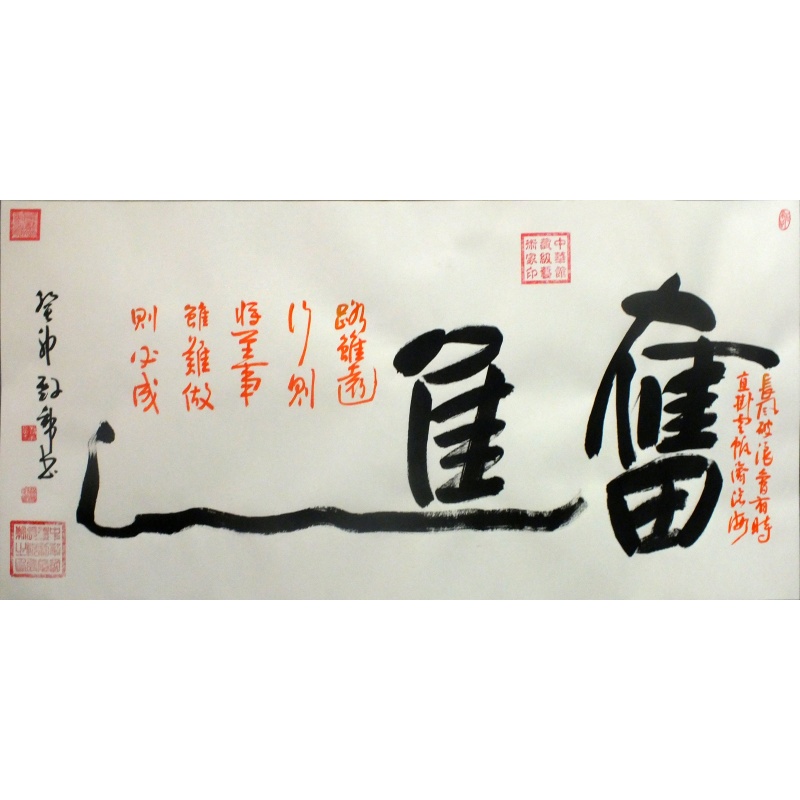 長風破浪會有時
直掛雲帆濟滄海
奮進
中華館
藏級書
術家印
路雖遠
行則
將至事
雖難做
則必成
癸卯
書